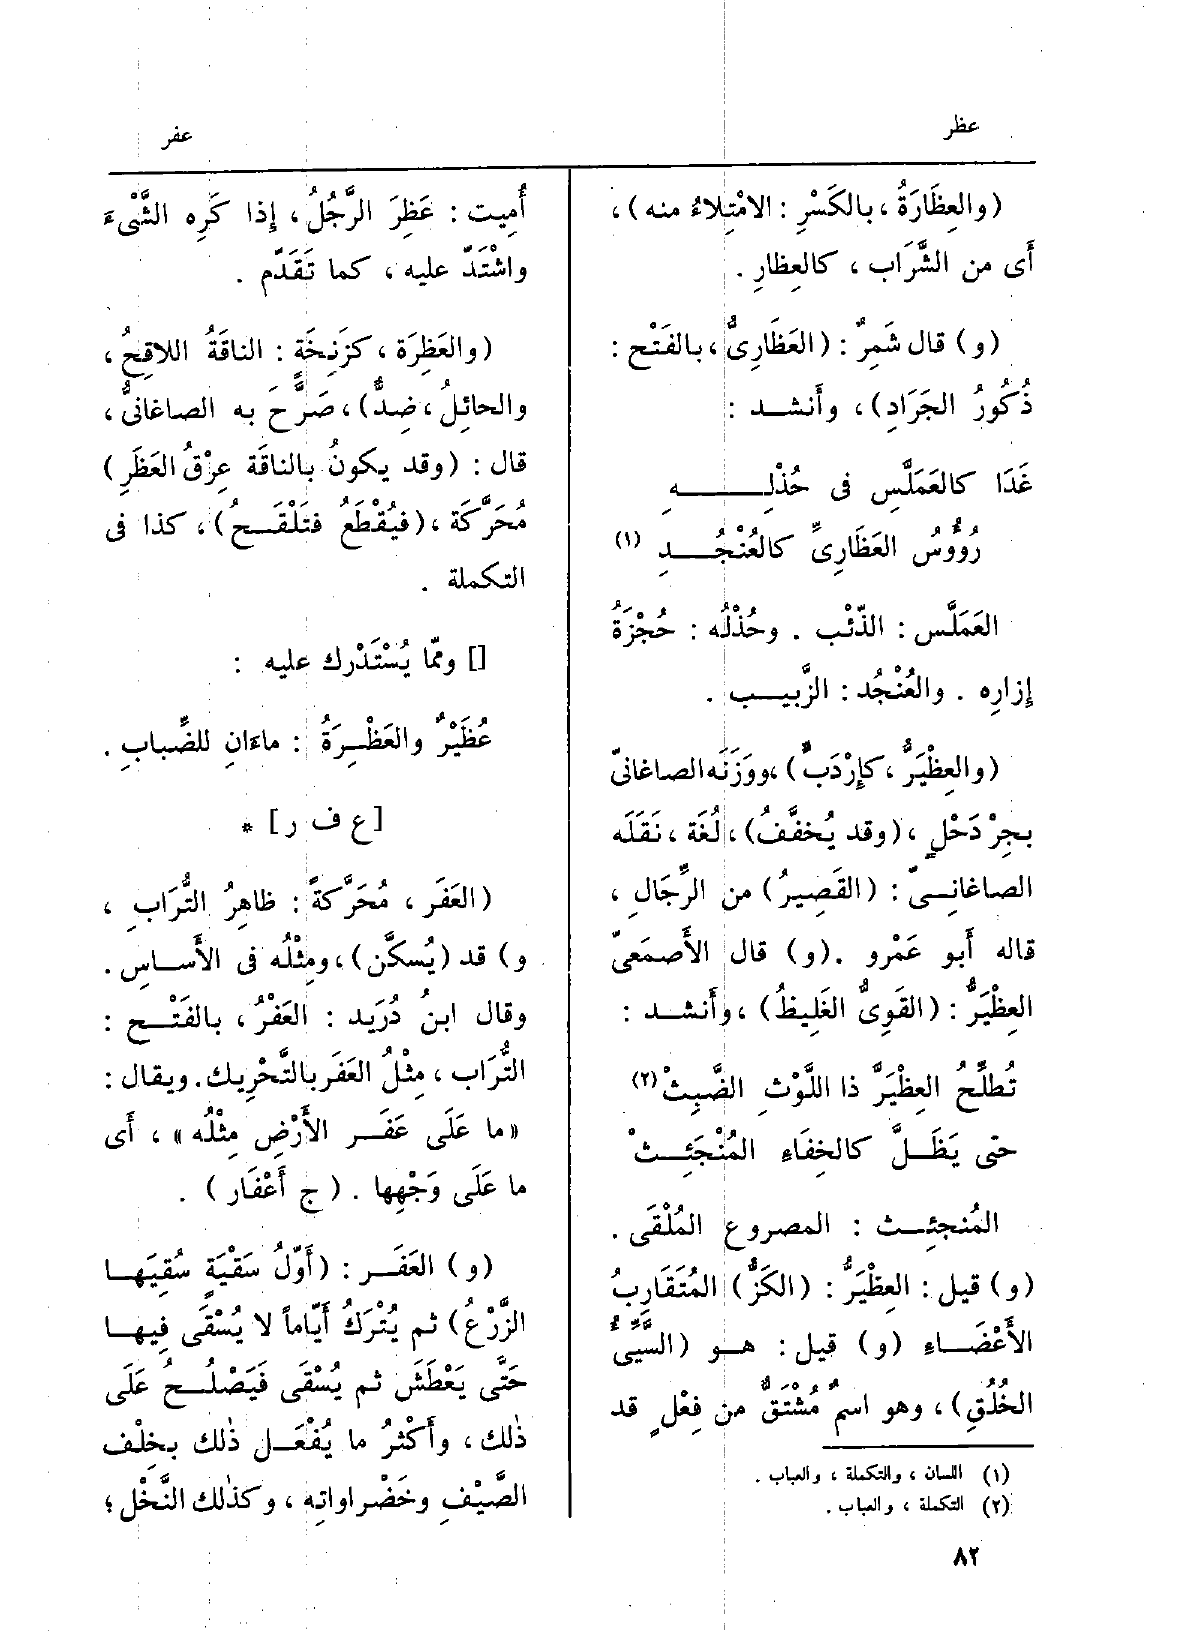 عظر
عفر
(والعِظَارَةُ ، بالكَسْرِ : الامْتِلاءُ منه) ،
أَى من الشَّرَاب ، كالعِظارِ .
(و) قال شَمِرٌ : (العَظَارِىُّ ، بالفَتْح :
ذُكُورُ الجَرَادِ) ، وأَنشد :
غَدَا كالعَمَلَّسِ فى حُذْلِهِ
رُؤُوسُ العَظَارِىِّ كالعُنْجُدِ (١)
العَمَلَّس : الذّئْب . وحُذْلُه : حُجْزَةُ
إِزارِه . والعُنْجُد : الزَّبيب .
(والعِظْيَرُّ ، كإِرْدَبٍّ) ، ووَزَنَه الصاغانىّ
بجِرْدَحْلٍ ، (وقد يُخفَّفُ) ، لُغَة ، نَقَلَه
الصاغانِىّ : (القَصِيرُ) من الرِّجَالِ ،
قاله أَبو عَمْرو . (و) قال الأَصمَعىّ
العِظْيَرُّ : (القَوِىُّ الغَلِيظُ) ، وأَنشد :
تُطلِّحُ العِظْيَرَّ ذا اللَّوْثِ الضَّبِثْ (٢)
حتى يَظَلَّ كالخِفَاءِ المُنْجَئِثْ
المُنجئِث : المصروع المُلْقَى .
(و) قيل : العِظْيَرُّ : (الكَزُّ) المُتَقَارِبُ
الأَعْضَاءِ (و) قيل : هو (السَّيِّئُ
الخُلُقِ) ، وهو اسمٌ مُشْتَقٌّ من فِعْلٍ قد
(١) اللسان ، والتكملة ، والعباب .
(٢) التكملة ، والعباب .
٨٢
أُمِيت : عَظِرَ الرَّجُلُ ، إِذا كَرِه الشَّىْءَ
واشْتَدَّ عليه ، كما تَقَدَّم .
(والعَظِرَة ، كزَنِخَةٍ : الناقَةُ اللاقِحُ ،
والحائِلُ ، ضِدٌّ) ، صَرَّحَ به الصاغانىُّ ،
قال : (وقد يكونُ بالناقَة عِرْقُ العَظَرِ)
مُحَرَّكَة ، (فيُقْطَعُ فتَلْقَحُ) ، كذا فى
التكملة .
[] وممّا يُسْتَدْرك عليه :
عُظَيْرٌ والعَظْرَةُ : ماءَانِ للضِّبابِ .
[ع ف ر] *
(العَفَر ، مُحَرَّكَةً : ظاهِرُ التُّرَابِ ،
و) قد (يُسكَّن) ، ومِثْلُه فى الأَساسِ .
وقال ابنُ دُرَيد : العَفْرُ ، بالفَتْح :
التُّرَاب ، مِثْلُ العَفَر بالتَّحْرِيك . ويقال :
«ما عَلَى عَفَرِ الأَرْضِ مِثْلُه» ، أَى
ما عَلَى وَجْهِها . (ج أَعْفَار) .
(و) العَفَر : (أَوّلُ سَقْيَةٍ سُقِيَها
الزَّرْعُ) ثم يُتْرَكُ أَيّاماً لا يُسْقَى فِيها
حَتَّى يَعْطَش ثم يُسْقَى فَيَصْلُحُ عَلَى
ذٰلك ، وأَكْثرُ ما يُفْعَل ذٰلك بخِلْف
الصَّيْفِ وخَضْراواتِه ، وكذٰلك النَّخْل ؛